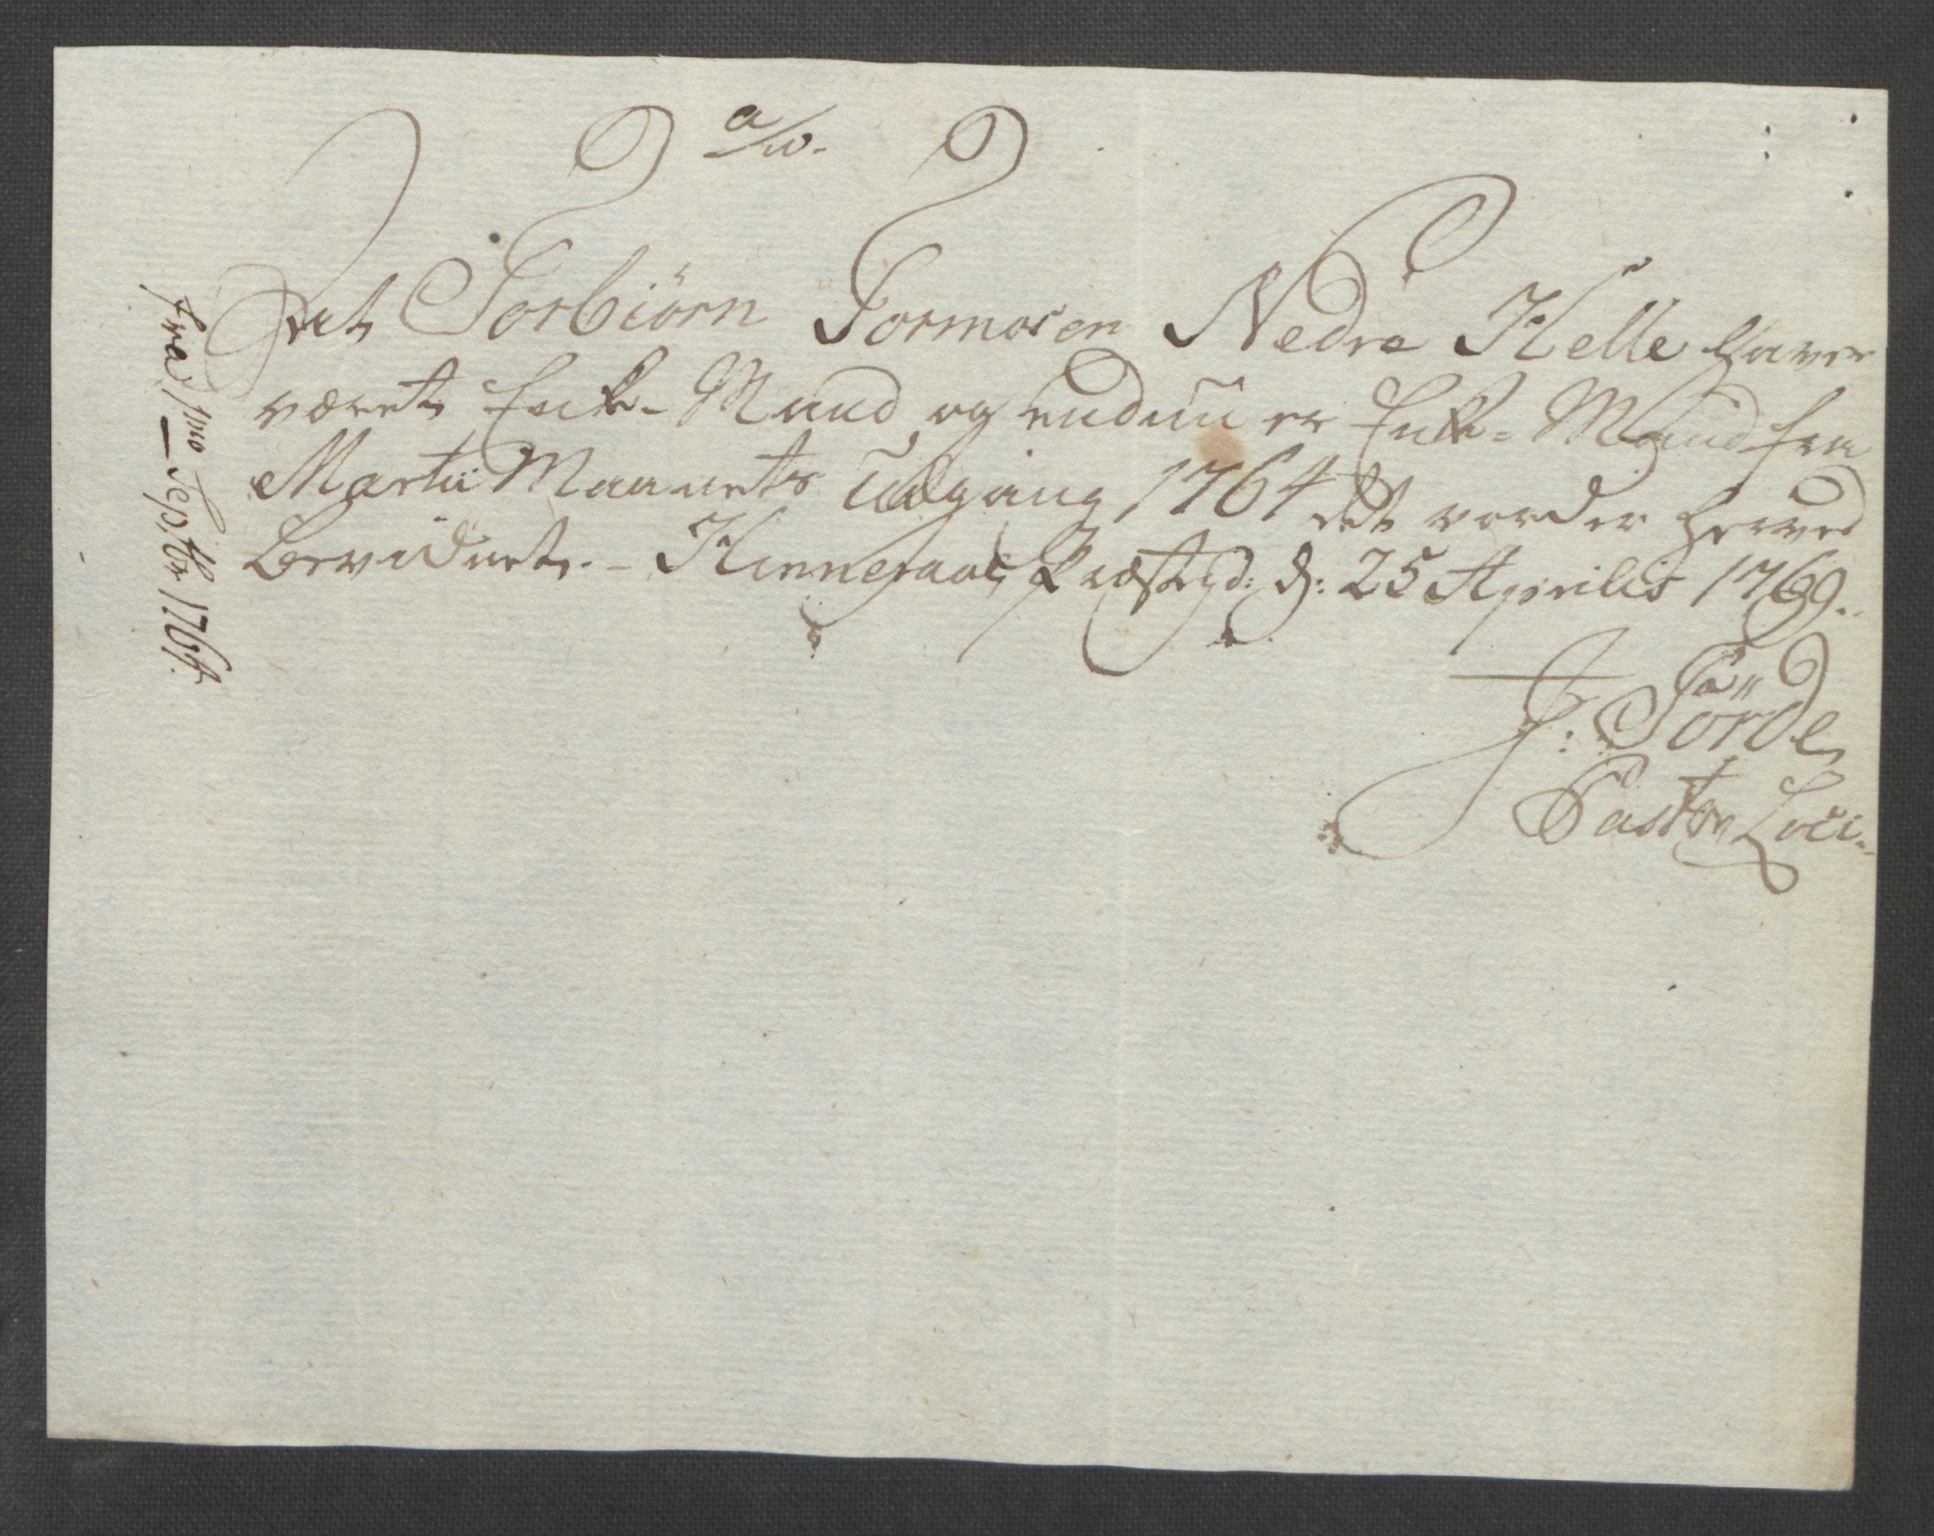 a/w.
At Torbiörn Tormosen Nedre Helle haver
været Enke-Mand og endnu er Enke-Mand fra
Martii Maanets Udgang 1764 det vorder herved
bevidnet. - Hinneraae Præstegd: d: 25 Aprilis 1769.
J: Törde
Pastor Loci.
Fra 1mo Septbr 1764.